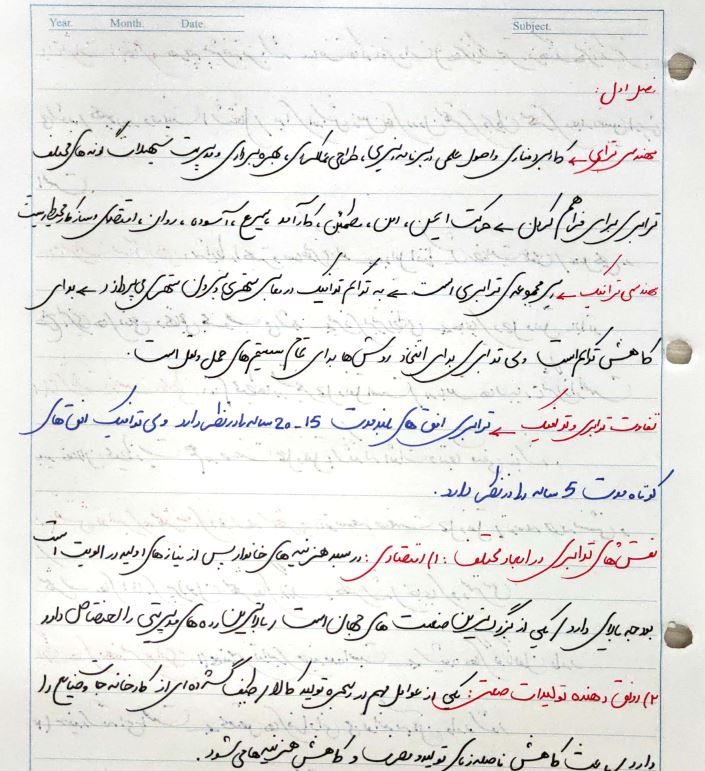 Year. Month. Date. Subject.
فصل اول:
مهندسی ترابری ← کاربرد فناوری و اصول علمی در برنامه ریزی، طراحی عملکردی، بهره برداری و مدیریت تسهیلات گونه های مختلف
ترابری برای فراهم کردن ← حرکت ایمن، امن، مطمئن، کارآمد، سریع، آسوده، روان، اقتصادی و سازگار با محیط زیست
است
مهندسی ترافیک ← زیر مجموعه ی ترابری است ← به تراکم ترافیک در معابر شهری و برون شهری می پردازد ← برای
کاهش تراکم است ولی ترابری برای اتخاذ روش ها برای تمام سیستم های حمل و نقل است.
تفاوت ترابری و ترافیک ← ترابری افق های بلند مدت 15-20 ساله را در نظر دارد ولی ترافیک افق های
کوتاه مدت 5 ساله را در نظر دارد.
نقش های ترابری در ابعاد مختلف: ۱) اقتصادی: در سبد هزینه های خانوار پس از نیازهای اولیه در الویت است
بودجه بالایی دارد / یکی از بزرگ ترین صنعت های جهان است / بالاترین رده های مدیریتی را اختصاص دارد
۲) رونق دهنده تولیدات صنعتی: یکی از عوامل مهم در زنجیره تولید کالا / طیف گسترده ای از کارخانه جات و صنایع را
دارد / باعث کاهش فاصله زمانی تولید و مصرف و کاهش هزینه ها می شود.